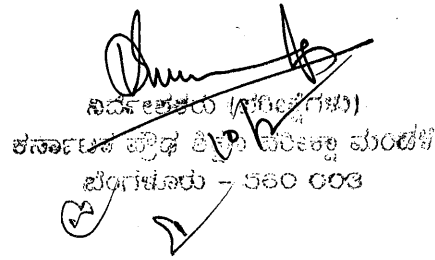 ನಿರ್ದೇಶಕರು (ಪರೀಕ್ಷೆಗಳು)
ಕರ್ನಾಟಕ ಪ್ರೌಢ ಶಿಕ್ಷಣ ಪರೀಕ್ಷಾ ಮಂಡಳಿ
ಬೆಂಗಳೂರು – 560 003